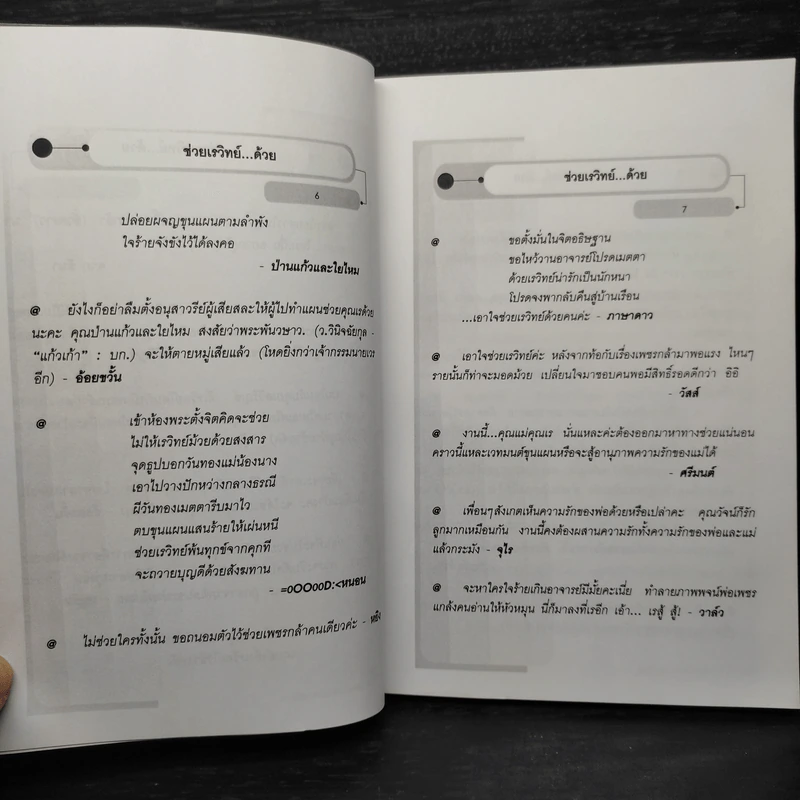 ช่วยเรวิทย์...ด้วย
6
ปล่อยผจญขุนแผนตามลำพัง
ใจร้ายจังขังไว้ได้ลงคอ
- ป่านแก้วและใยไหม
@ ยังไงก็อย่าลืมตั้งอนุสาวรีย์ผู้เสียสละให้ผู้ไปทำแผนช่วยคุณเรด้วย
นะคะ คุณป่านแก้วและใยไหม สงสัยว่าพระพันวษาว. (ว.วินิจฉัยกุล -
“แก้วเก้า” : บก.) จะให้ตายหมู่เสียแล้ว (โหดยิ่งกว่าเจ้ากรรมนายเวร
อีก) - อ้อยขวั้น
@ เข้าห้องพระตั้งจิตคิดจะช่วย
ไม่ให้เรวิทย์ม้วยด้วยสงสาร
จุดธูปบอกวันทองแม่น้องนาง
เอาไปวางปักหว่างกลางธรณี
ผีวันทองเมตตารีบมาไว
ตบขุนแผนแสนร้ายให้เผ่นหนี
ช่วยเรวิทย์พ้นทุกข์จากคุกที
จะถวายบุญดีด้วยสังฆทาน
- =oOOooD:<หนอน
@ ไม่ช่วยใครทั้งนั้น ขอถนอมตัวไว้ช่วยเพชรกล้าคนเดียวค่ะ - หยิง
ช่วยเรวิทย์...ด้วย
7
@ ขอตั้งมั่นในจิตอธิษฐาน
ขอไหว้วานอาจารย์โปรดเมตตา
ด้วยเรวิทย์น่ารักเป็นนักหนา
โปรดจงพากลับคืนสู่บ้านเรือน
...เอาใจช่วยเรวิทย์ด้วยคนค่ะ - ภาษาดาว
@ เอาใจช่วยเรวิทย์ค่ะ หลังจากท้อกับเรื่องเพชรกล้ามาพอแรง ไหนๆ
รายนั้นก็ท่าจะมอดม้วย เปลี่ยนใจมาชอบคนพอมีสิทธิ์รอดดีกว่า อิอิ
- วัสส์
@ งานนี้...คุณแม่คุณเร นั่นแหละค่ะต้องออกมาหาทางช่วยแน่นอน
คราวนี้แหละเวทมนต์ขุนแผนหรือจะสู้อานุภาพความรักของแม่ได้
- ศรีมนต์
@ เพื่อนๆสังเกตเห็นความรักของพ่อด้วยหรือเปล่าคะ คุณวัจน์ก็รัก
ลูกมากเหมือนกัน งานนี้คงต้องผสานความรักทั้งความรักของพ่อและแม่
แล้วกระมัง - จุไร
@ จะหาใครใจร้ายเกินอาจารย์มีมั้ยคะเนี่ย ทำลายภาพพจน์พ่อเพชร
แกล้งคนอ่านให้หัวหมุน นี่ก็มาลงที่เรอีก เอ้า... เรสู้ สู้! - วาล์ว